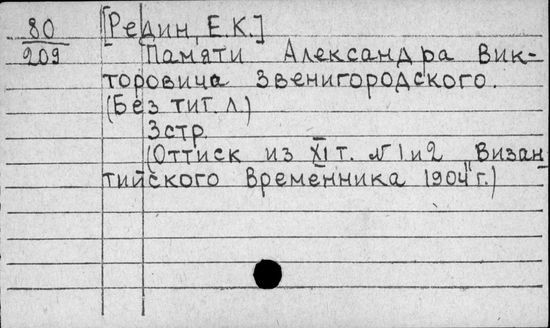 80
209
[Редин, Е.К.]
Памяти Александра Вик-
торовича Звенигородского.
(Без тит. л.)
3 стр.
(Оттиск из XI т. №1 и 2 "Визан
тийского Временника" 1904 г.)